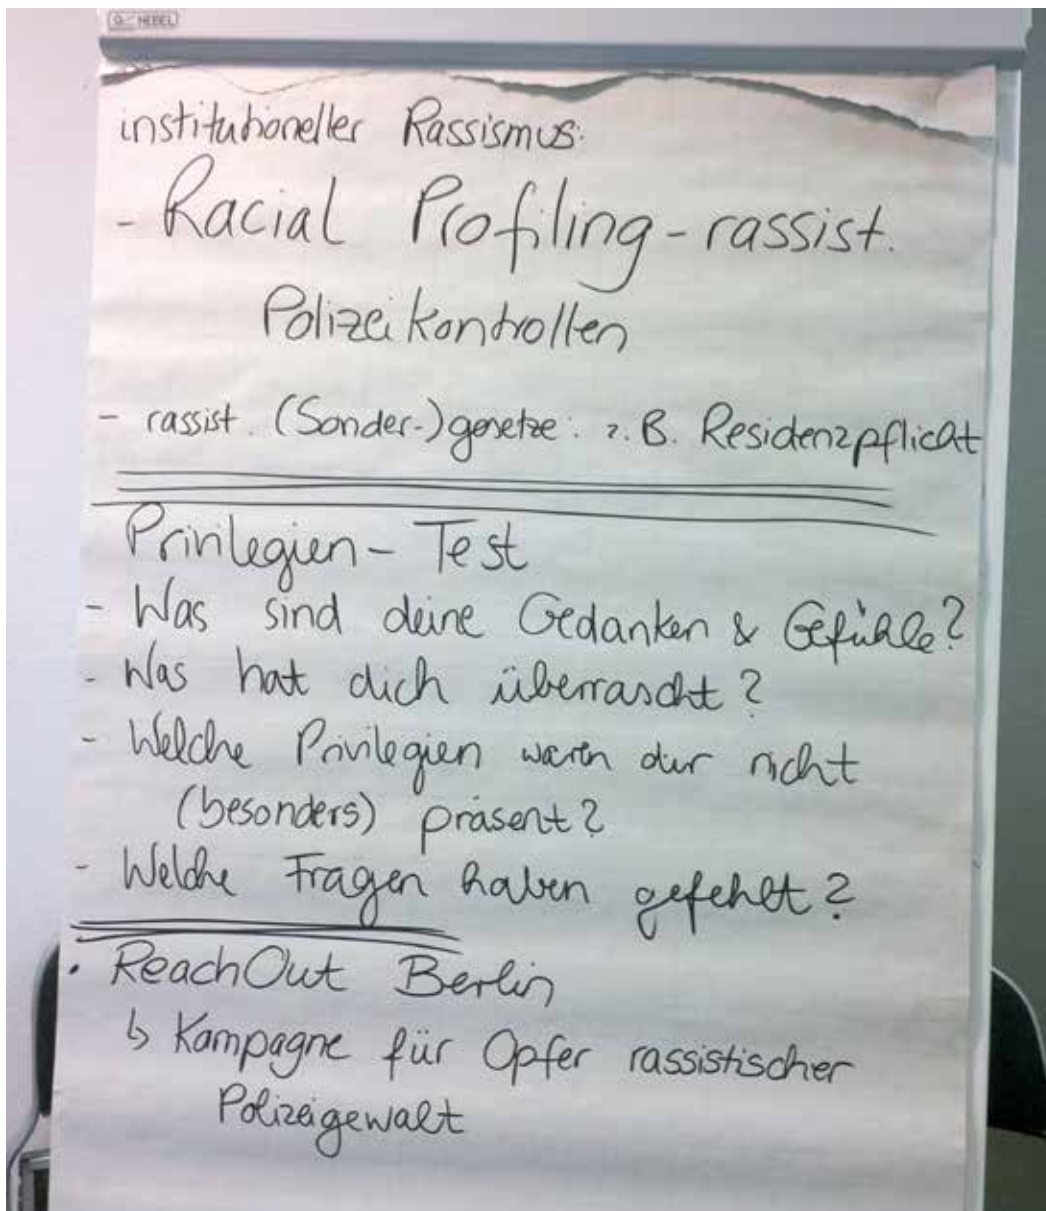 HEBEL
institutioneller Rassismus:
- Racial Profiling - rassist.
Polizeikontrollen
- rassist. (Sonder-)gesetze: z.B. Residenzpflicht
Privilegien - Test
- Was sind deine Gedanken & Gefühle?
- Was hat dich überrascht?
- Welche Privilegien waren dir nicht
(besonders) präsent?
- Welche Fragen haben gefehlt?
• ReachOut Berlin
↳ Kampagne für Opfer rassistischer
Polizeigewalt